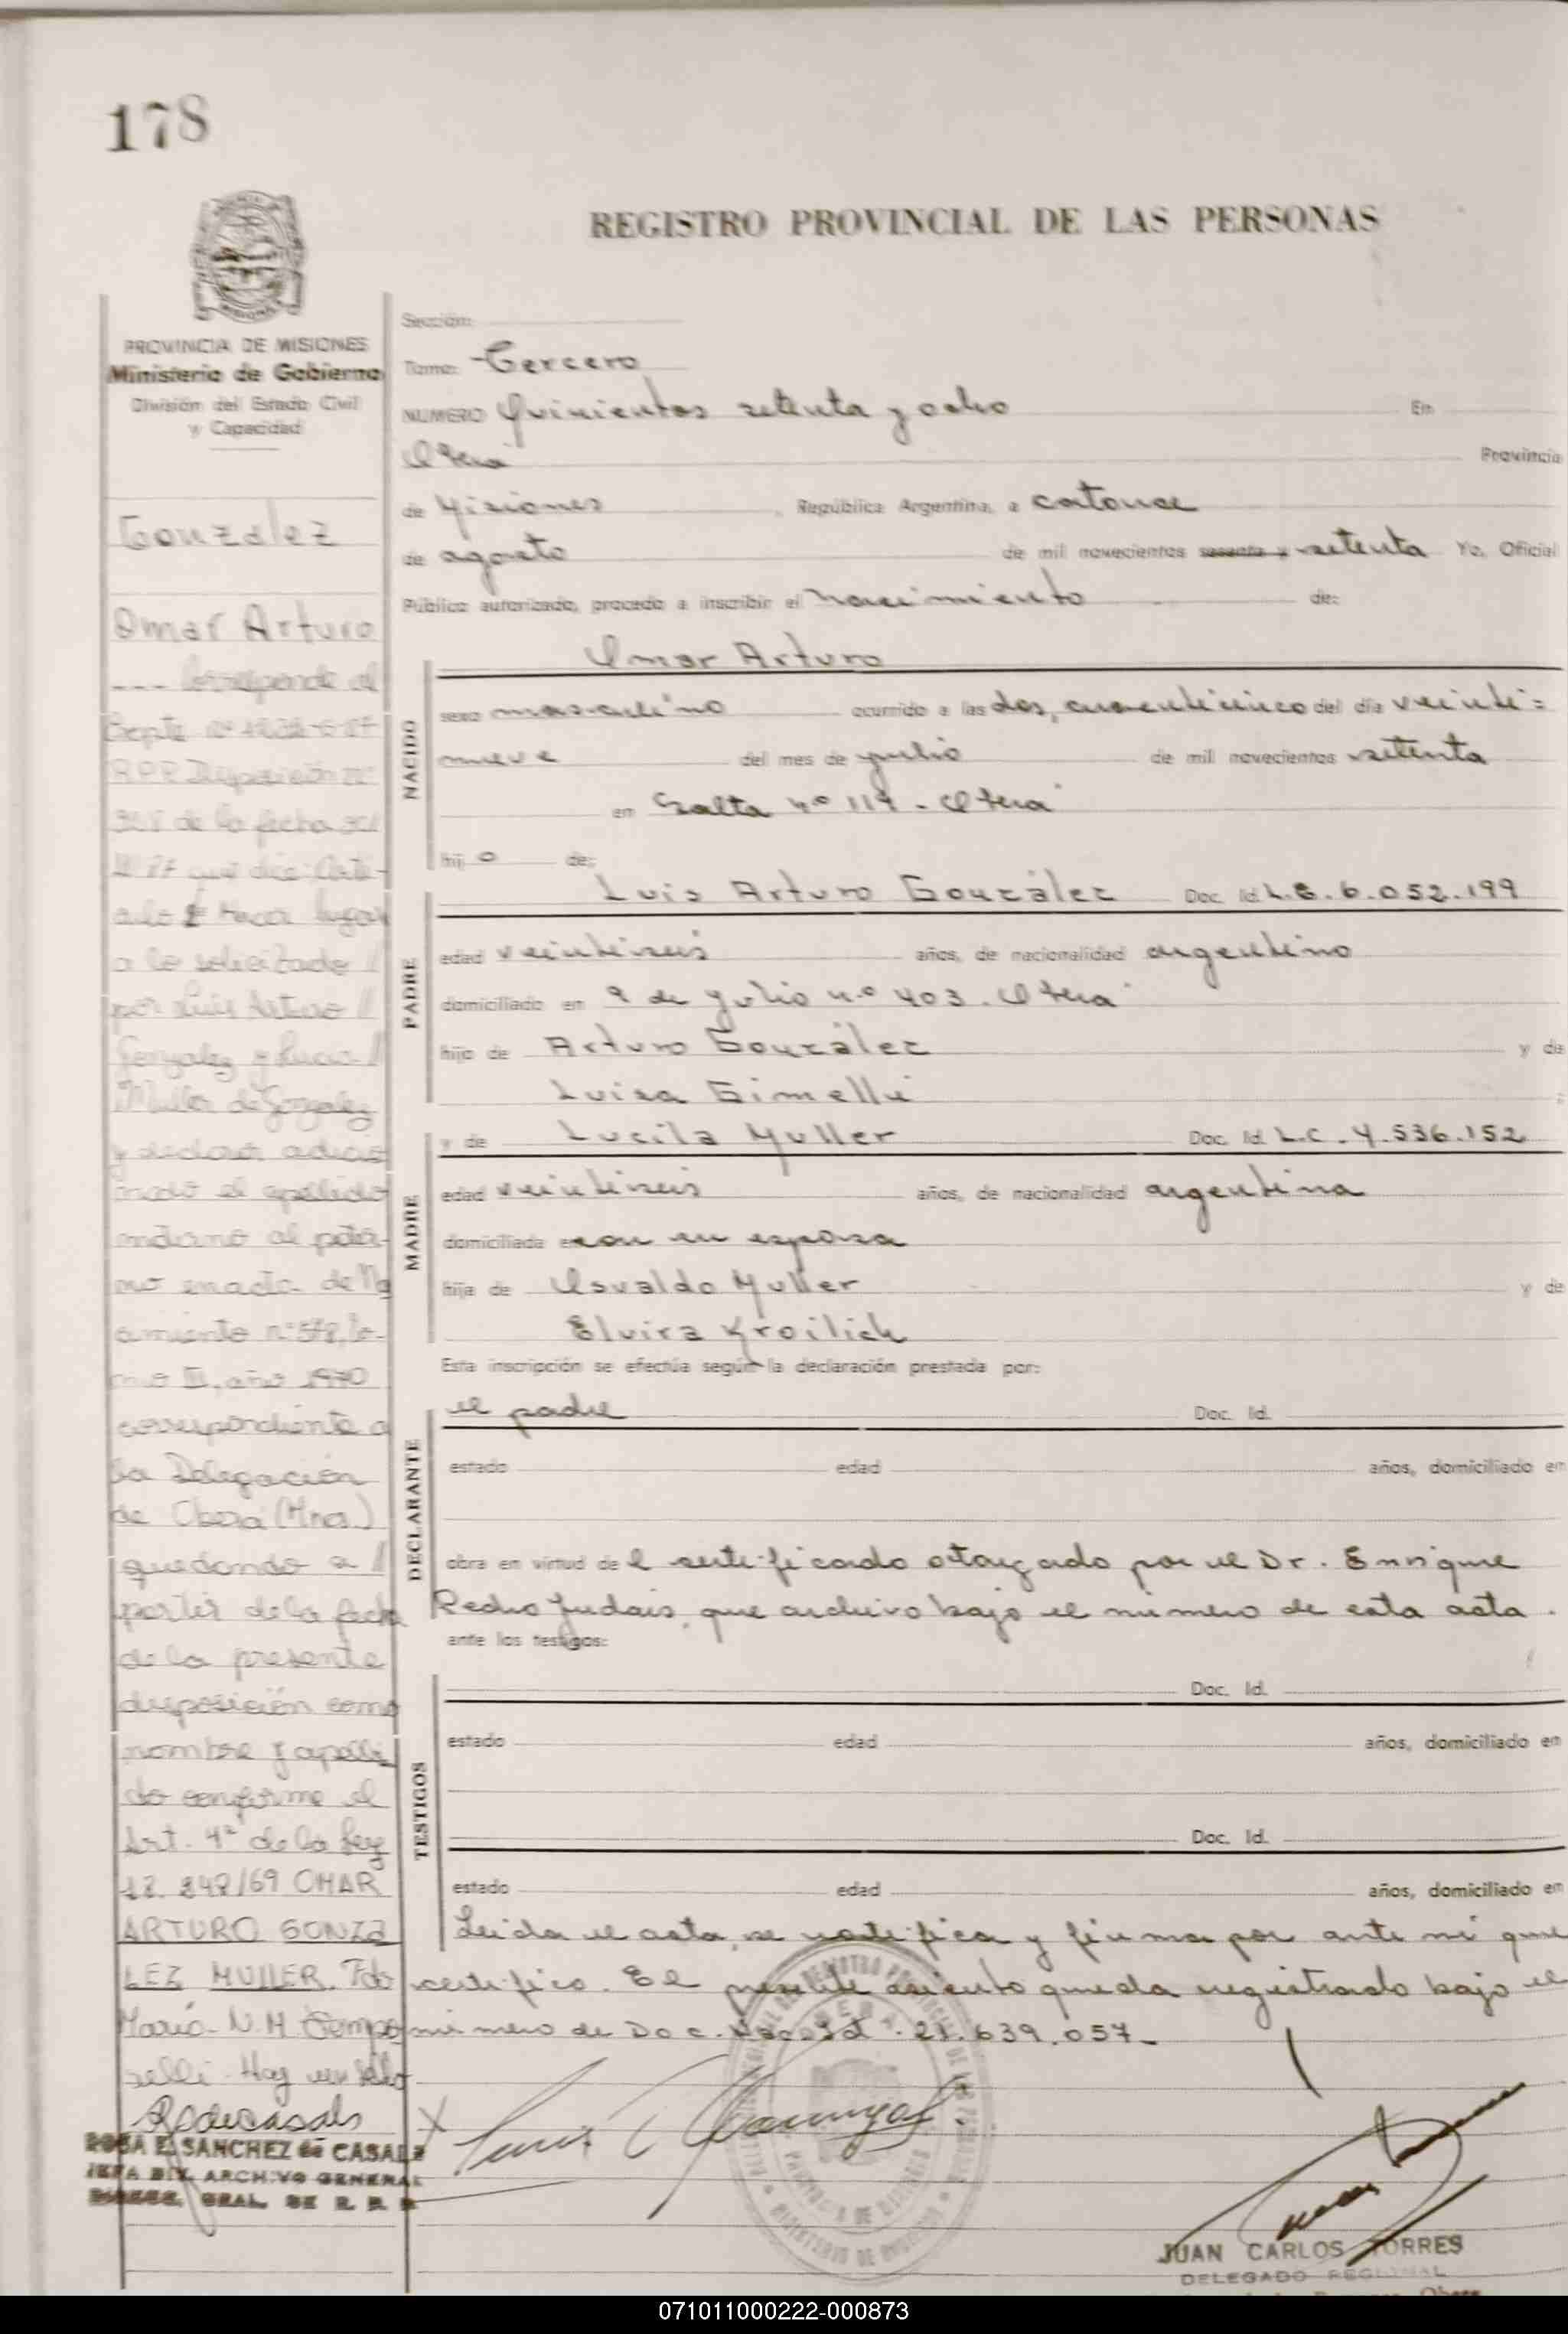 178
REGISTRO PROVINCIAL DE LAS PERSONAS
PROVINCIA DE MISIONES
Ministerio de Gobierno
División del Estado Civil
y Capacidad
Gonzalez
Omar Arturo
--- Corresponde al
Expte nº
R.P.P. Disposición nº
de la fecha
que dice: Artí-
culo 1º Hacer lugar
a lo solicitado //
por Luis Arturo //
Gonzalez y Lucila //
Muller de Gonzalez
y declarar adicio
nado el apellido
materno al pater-
no en acta de Na
cimiento nº 578, To-
mo III, año 1970
correspondiente a
la Delegación
de Oberá (Mnes.)
quedando a //
partir de la fecha
de la presente
disposición como
nombre y apelli
do conforme el
Art. 4º de la Ley
18.248/69 OMAR
ARTURO GONZA
LEZ MULLER. Fdo
Mario N.H.
Hay un sello
ROSA E. SANCHEZ de CASALS
JEFA DIV. ARCHIVO GENERAL
DIREC. GRAL. DE R. P. P.
Sección:
Tomo: Tercero
NUMERO Quinientos setenta y ocho En
Oberá Provincia
de Misiones, República Argentina, a catorce
de agosto de mil novecientos sesenta y setenta Yo, Oficial
Público autorizado, procedo a inscribir el nacimiento de:
NACIDO
Omar Arturo
sexo masculino ocurrido a las dos, cuarenticinco del día veinti=
nueve del mes de julio de mil novecientos setenta
en Salta nº 119 - Oberá
hijo de:
PADRE
Luis Arturo González Doc. Id. L.E. 6.052.199
edad veintiseis años, de nacionalidad argentino
domiciliado en 9 de julio n.º 403. Oberá
hijo de Arturo González y de
Luisa Gimelli
MADRE
y de Lucila Muller Doc. Id. L.C. 4.536.152
edad veintiseis años, de nacionalidad argentina
domiciliada en con su esposo
hija de Osvaldo Muller y de
Elvira Kroilich
Esta inscripción se efectúa según la declaración prestada por:
DECLARANTE
el padre Doc. Id.
estado edad años, domiciliado en
obra en virtud del certificado otorgado por el Dr. Enrique
Pedro Judais, que archivo bajo el número de esta acta.
ante los testigos:
TESTIGOS
Doc. Id.
estado edad años, domiciliado en
Doc. Id.
estado edad años, domiciliado en
Leída el acta, se ratifica y firma por ante mí que
certifico. El presente asiento queda registrado bajo el
número de Doc. Nac. Id. 21.639.057.
JUAN CARLOS TORRES
DELEGADO REGIONAL
071011000222-000873